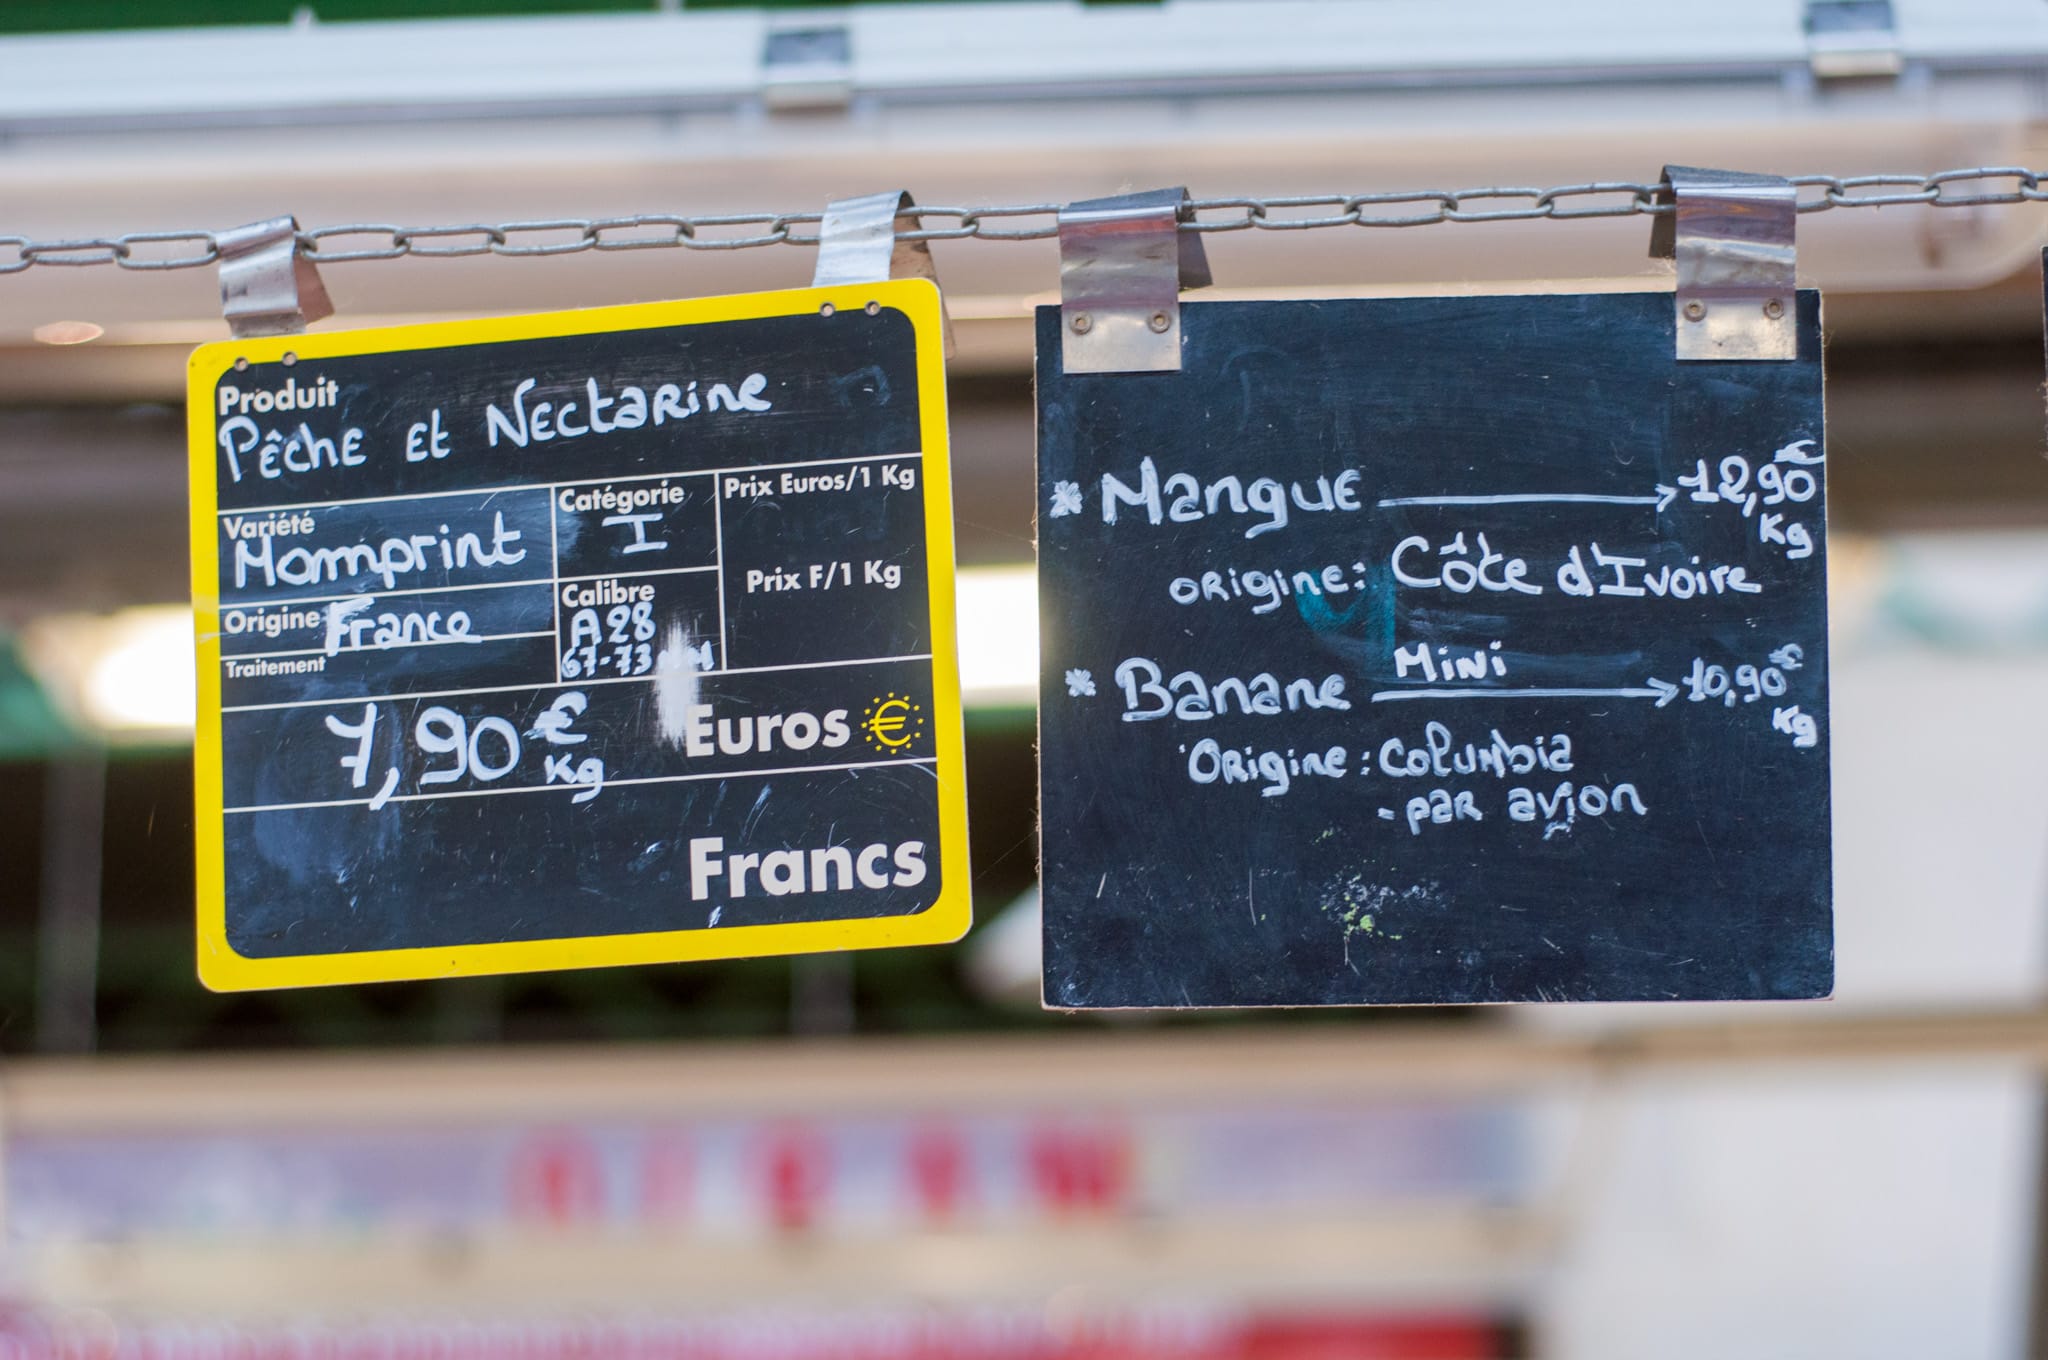 Produit
Pêche et Nectarine
Variété
Momprint
Catégorie
I
Prix Euros/1 Kg
Prix F/1 Kg
Origine France
Calibre
A 28
67-73
Traitement
7,90 €
Kg
Euros €
Francs
* Mangue → 12,90 €
Kg
Origine: Côte d'Ivoire
Mini
* Banane → 10,90 €
Kg
Origine: Columbia
- par avion